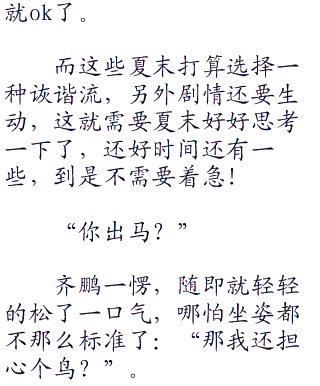 就ok了。
而这些夏末打算选择一
种诙谐流，另外剧情还要生
动，这就需要夏末好好思考
一下了，还好时间还有一
些，到是不需要着急！
“你出马？”
齐鹏一愣，随即就轻轻
的松了一口气，哪怕坐姿都
不那么标准了：“那我还担
心个鸟？”。